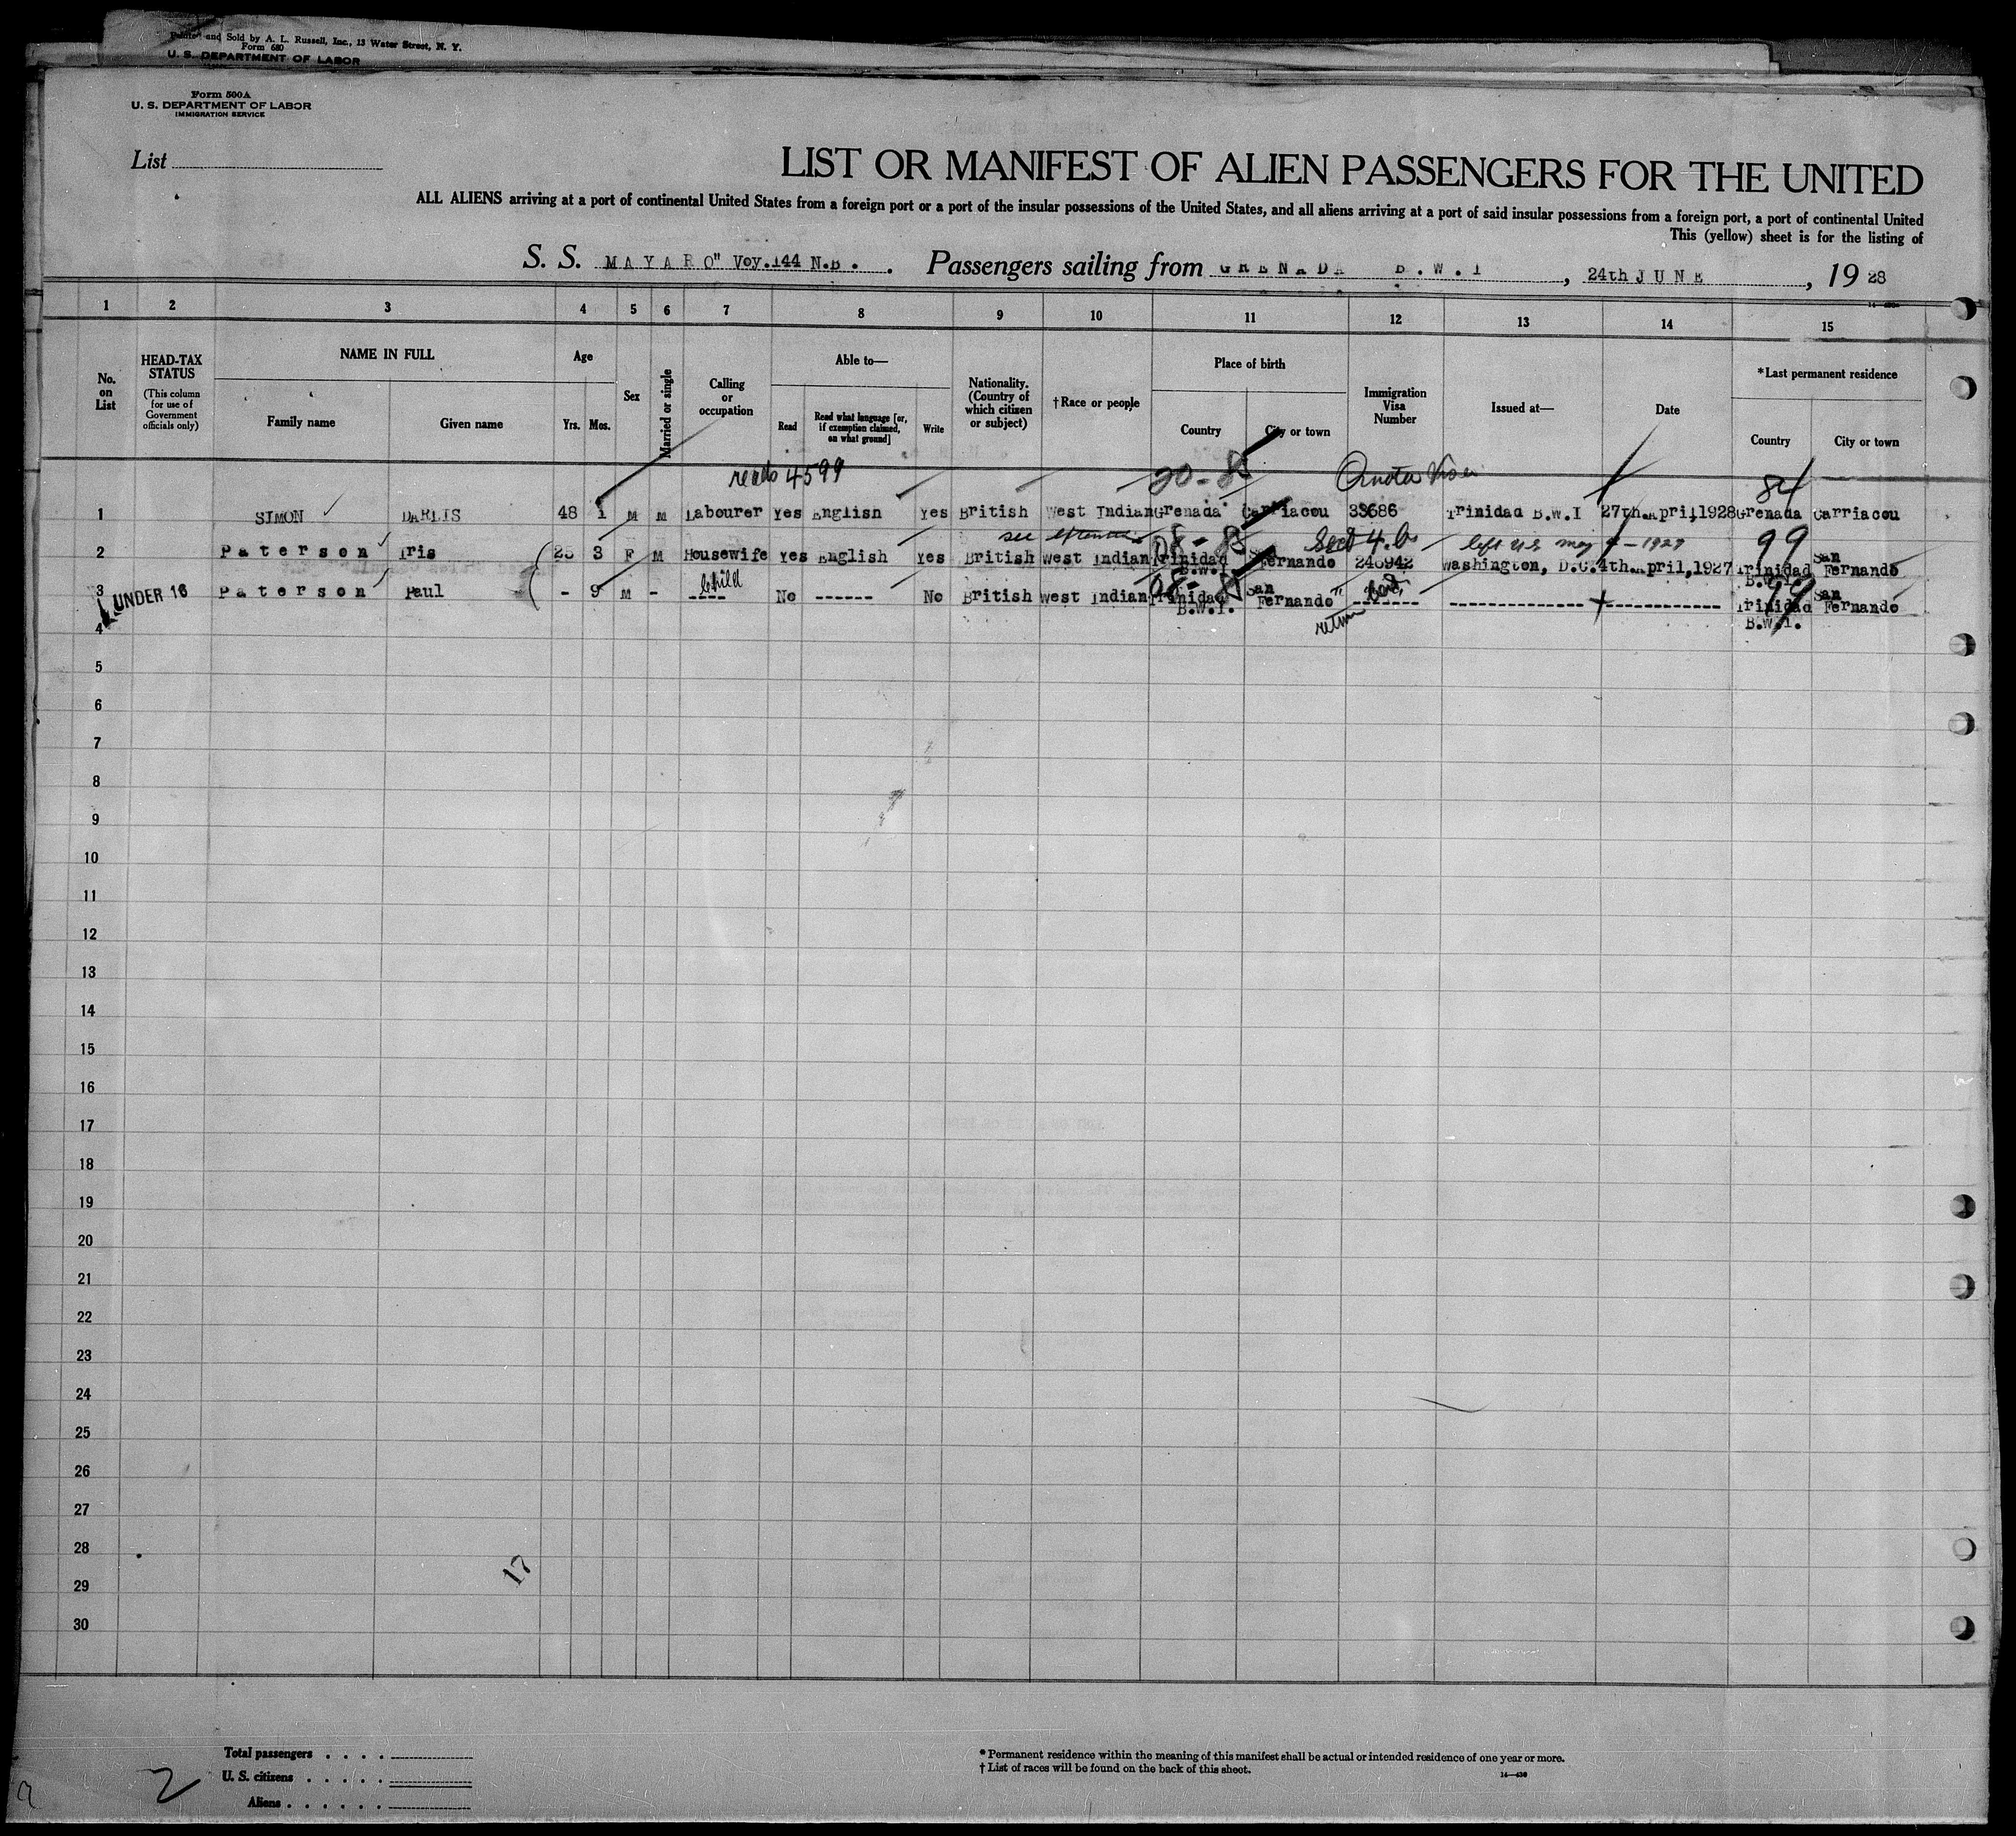 and Sold by A. L. Russell, Inc., 13 Water Street, N. Y.
Form 680
U. S. DEPARTMENT OF LABOR
Form 500A
U. S. DEPARTMENT OF LABOR
IMMIGRATION SERVICE
List
LIST OR MANIFEST OF ALIEN PASSENGERS FOR THE UNITED
ALL ALIENS arriving at a port of continental United States from a foreign port or a port of the insular possessions of the United States, and all aliens arriving at a port of said insular possessions from a foreign port, a port of continental United
This (yellow) sheet is for the listing of
S. S. MAYARO" Voy.144 N.B. Passengers sailing from GRENADA B.W.I, 24th JUNE, 1928
1 2 3 4 5 6 7 8 9 10 11 12 13 14 15
No. on List
HEAD-TAX STATUS
(This column for use of Government officials only)
NAME IN FULL
Family name Given name
Age
Yrs. Mos.
Sex
Married or single
Calling or occupation
Able to—
Read
Read what language [or, if exemption claimed, on what ground]
Write
Nationality. (Country of which citizen or subject)
†Race or people
Place of birth
Country City or town
Immigration Visa Number
Issued at—
Date
*Last permanent residence
Country City or town
reads 4599 20-8 Quota Visa 84
1 SIMON DARLIS 48 1 M M Labourer Yes English Yes British West Indian Grenada Carriacou 33686 Trinidad B.W.I 27th.April,1928 Grenada Carriacou
see 08-8 Sect 4.b left U.S. may 99
2 Paterson Iris 3 F M Housewife Yes English Yes British West Indian Trinidad B.W.I. San Fernando 246942 Washington, D.C. 4th.April,1927 Trinidad B.W.I. San Fernando
3 UNDER 16 Paterson Paul - 9 M - Child No ------ No British West Indian Trinidad B.W.I. San Fernando" ------- -------------- ------------ Trinidad B.W.I. San Fernando
08-8 99
return
4
5
6
7
8
9
10
11
12
13
14
15
16
17
18
19
20
21
22
23
24
25
26
27
28
29
30
17
Total passengers . . . .
U. S. citizens . . . . .
Aliens . . . . . .
2
* Permanent residence within the meaning of this manifest shall be actual or intended residence of one year or more.
† List of races will be found on the back of this sheet.
14—430